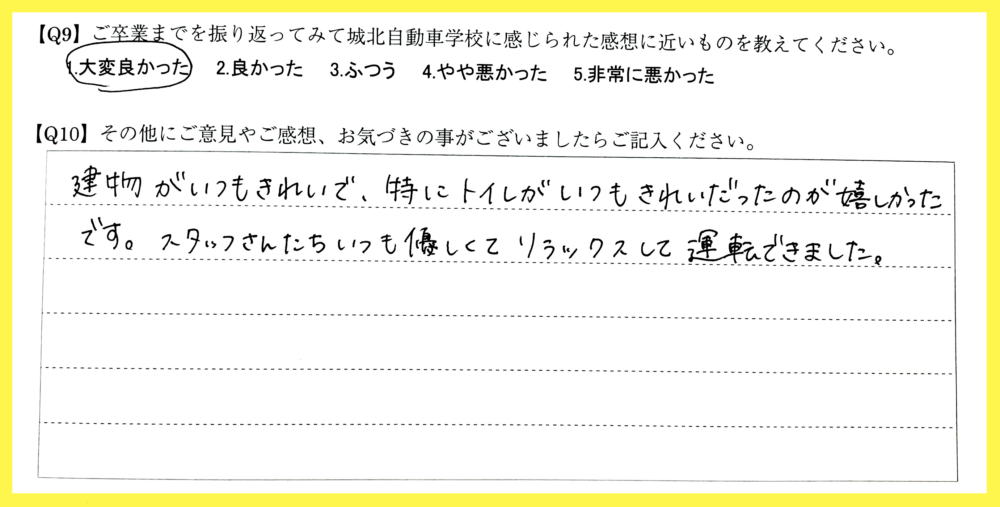 【Q9】ご卒業までを振り返ってみて城北自動車学校に感じられた感想に近いものを教えてください。
1.大変良かった 2.良かった 3.ふつう 4.やや悪かった 5.非常に悪かった
【Q10】その他にご意見やご感想、お気づきの事がございましたらご記入ください。
建物がいつもきれいで、特にトイレがいつもきれいだったのが嬉しかった
です。スタッフさんたちいつも優しくてリラックスして運転できました。